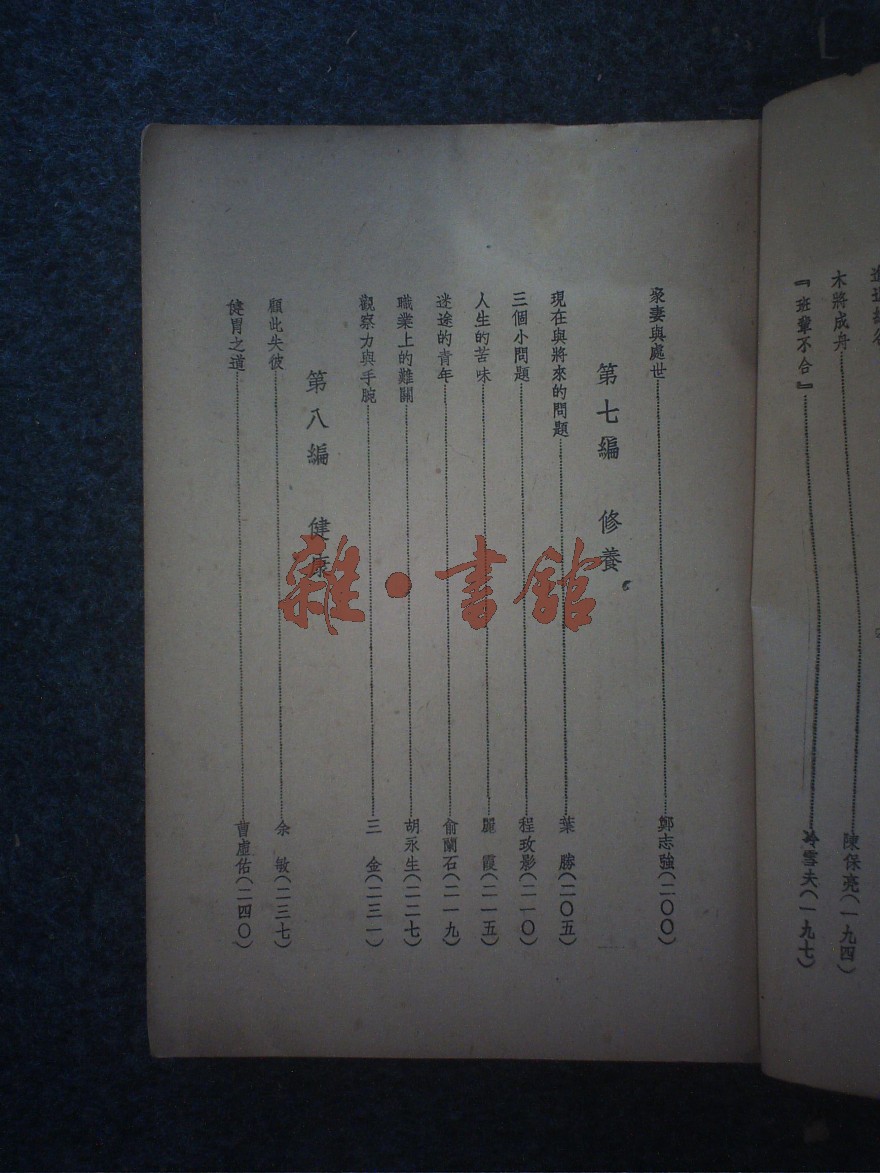 木將成舟……陳保亮(一九四)
『班輩不合』……冷雪夫(一九七)
妻與處世……鄭志強(二〇〇)
第七編 修養
現在與將來的問題……葉 勝(二〇五)
三個小問題……程玫影(二一〇)
人生的苦味……麗 霞(二一五)
迷途的青年……俞蘭石(二一九)
職業上的難關……胡永生(二二七)
觀察力與手腕……三 金(二三一)
第八編 健康
顧此失彼……余 敏(二三七)
健胃之道……曹虛佑(二四〇)
雜·書館